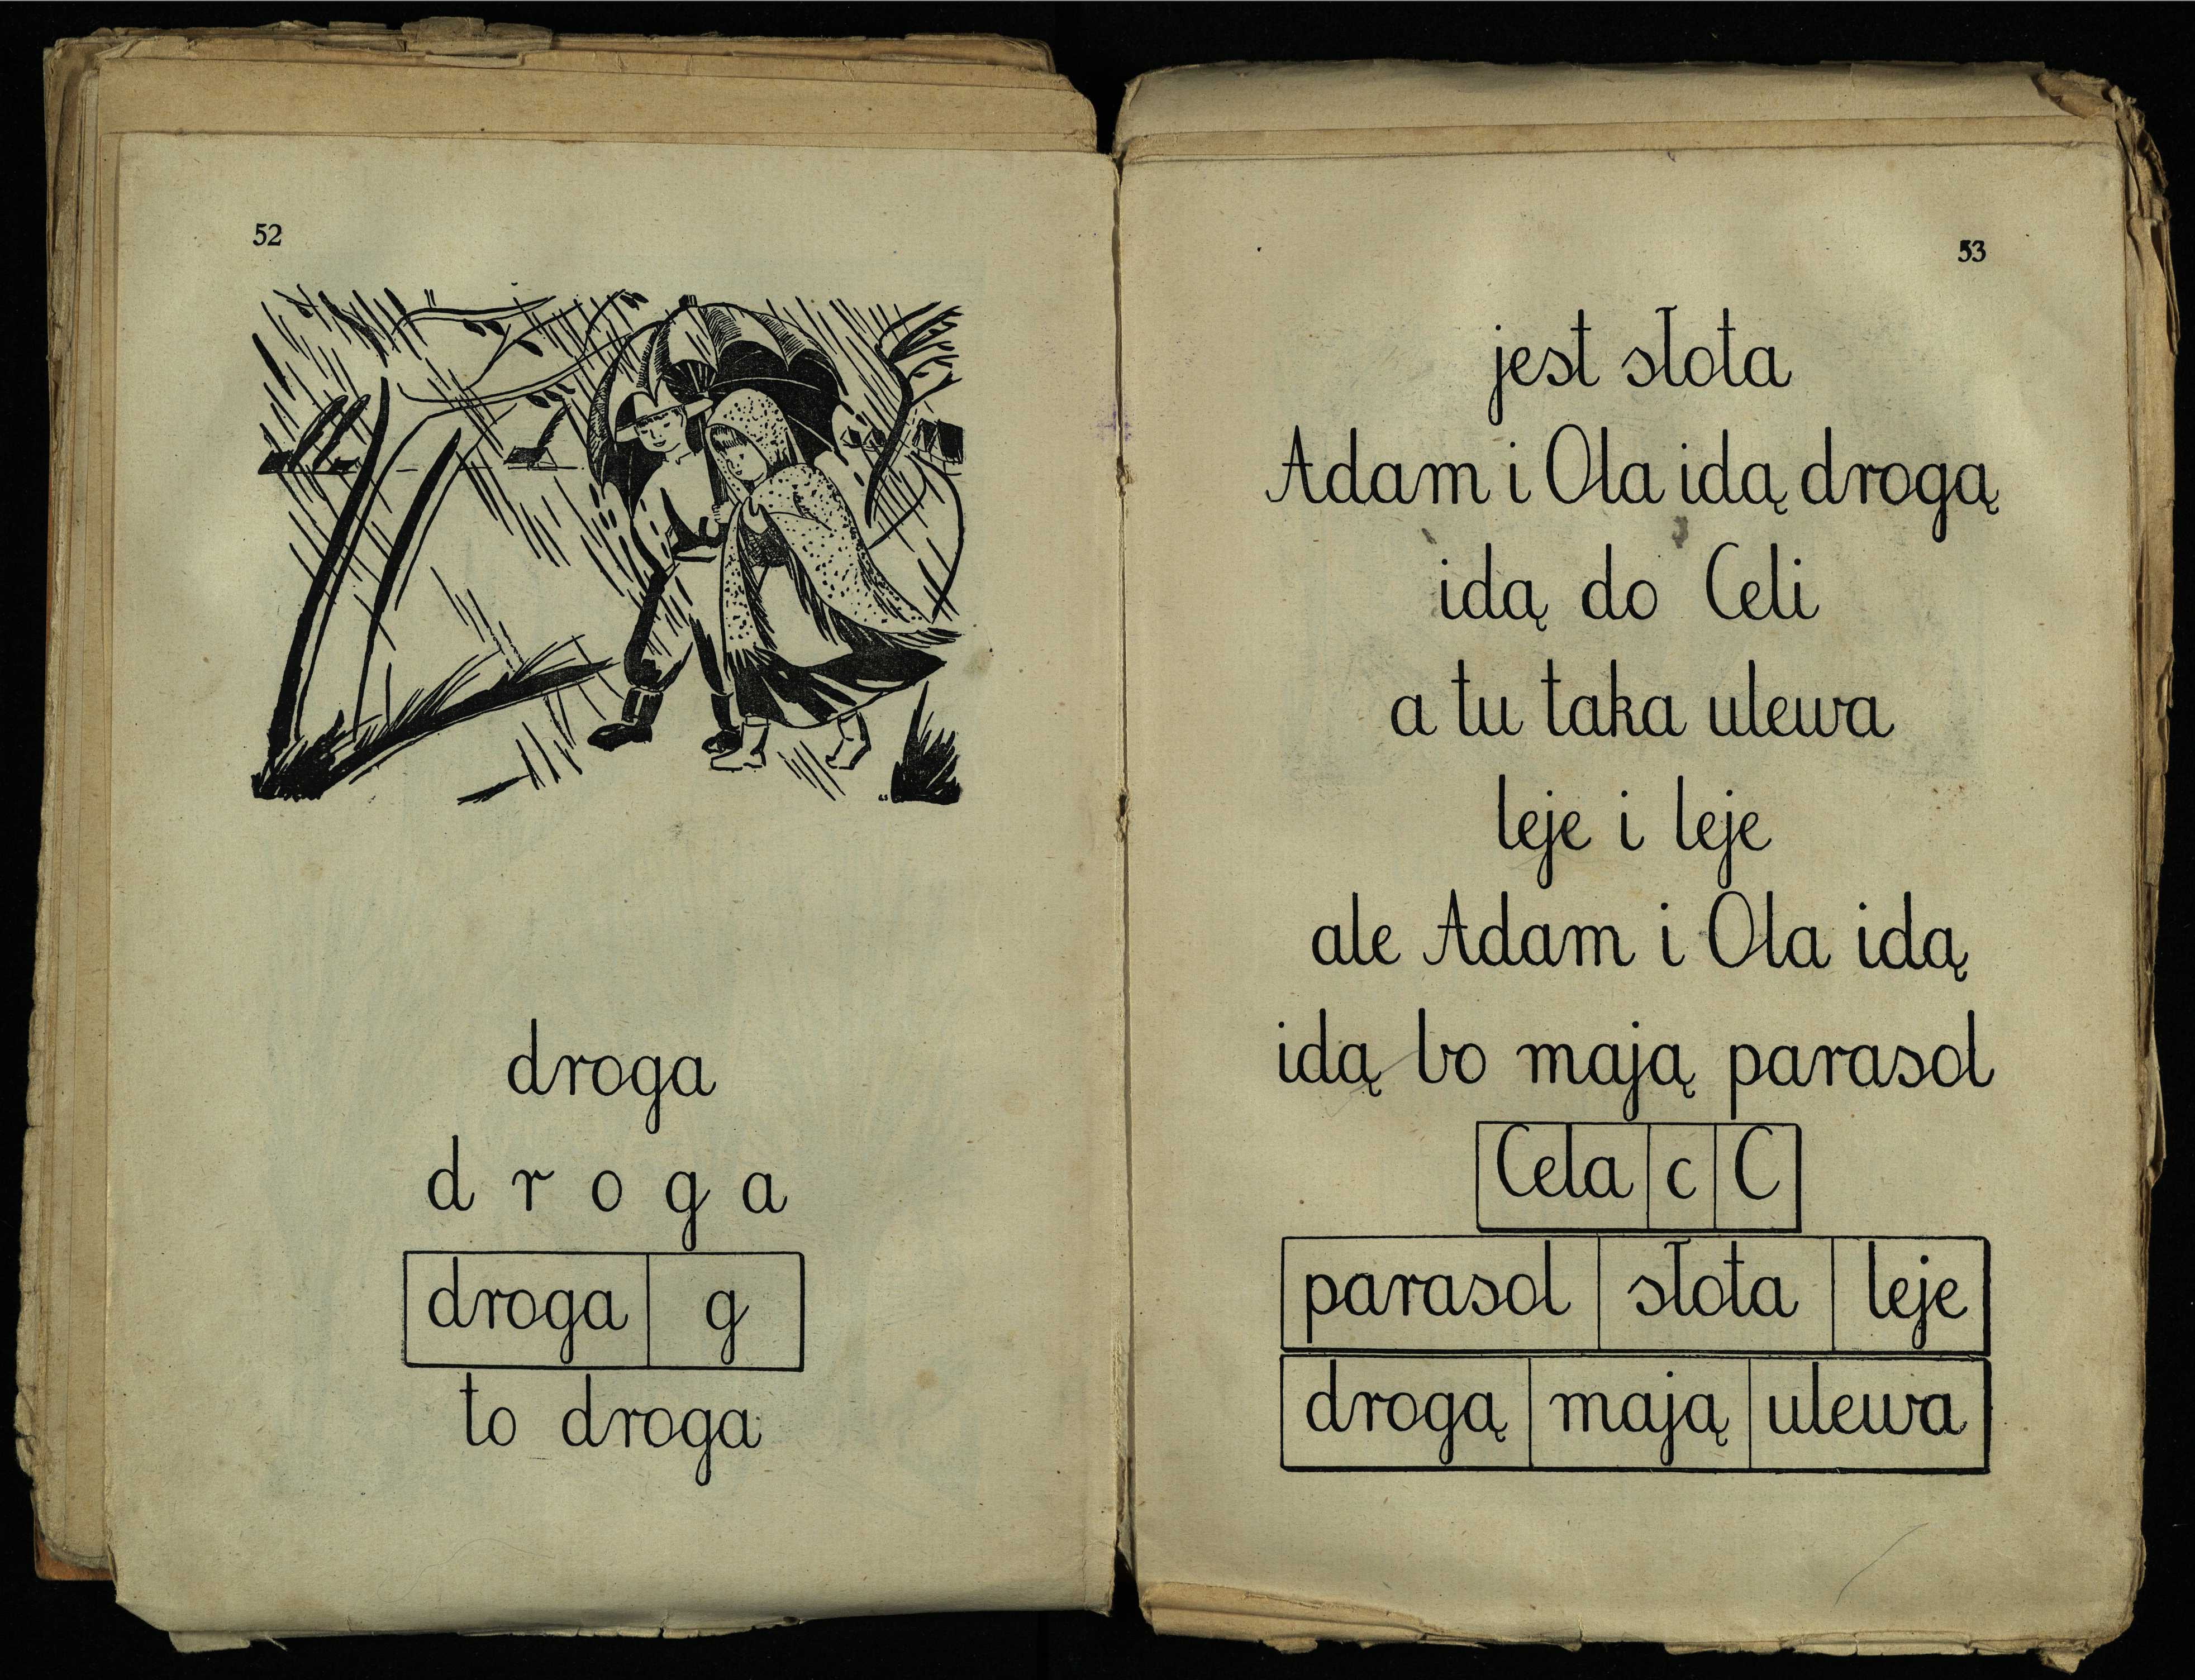 52
droga
d r o g a
droga g
to droga
53
jest słota
Adam i Ola idą drogą
idą do Celi
a tu taka ulewa
leje i leje
ale Adam i Ola idą
idą bo mają parasol
Cela c C
parasol słota leje
drogą mają ulewa